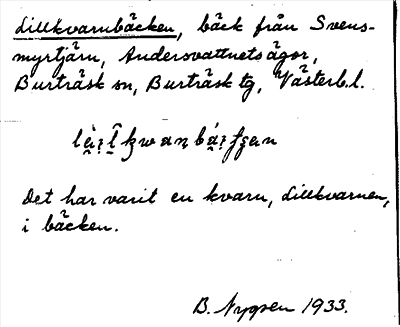 Lillkvarnbäcken, bäck från Svens-
myrtjärn, Andersvattnets ägor,
Burträsk sn, Burträsk tg, Västerb. l.
Det har varit en kvarn, Lillkvarnen,
i bäcken.
B. Nygren 1933.